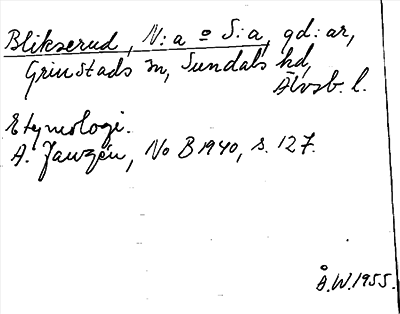 Blikserud, N:a o S:a, gd:ar,
Grinstads sn, Sundals hd,
Älvsb. l.
Etymologi.
A. Janzén, No B 1940, s. 127.
Å.W. 1955.